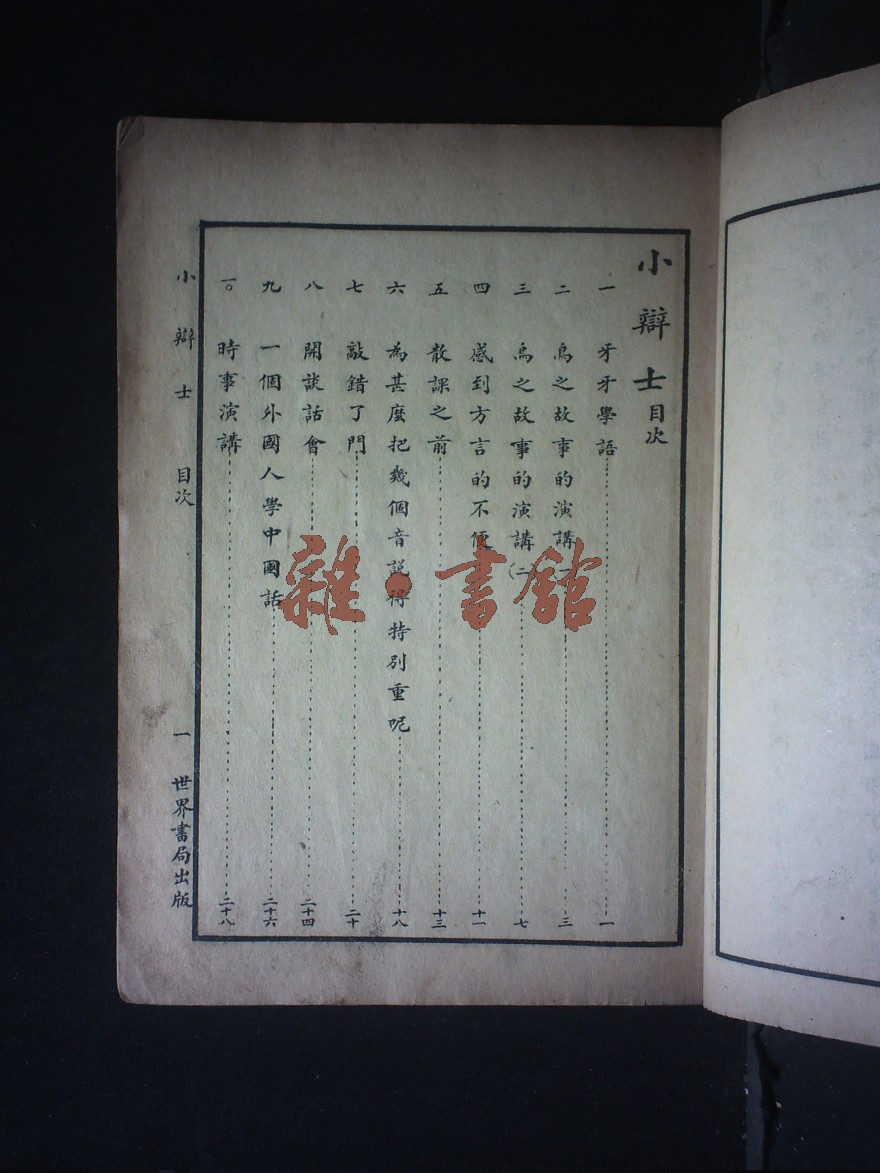 小辯士目次
一 牙牙學語 一
二 烏之故事的演講(一 三
三 烏之故事的演講(二) 七
四 感到方言的不便 十一
五 散課之前 十三
六 為甚麼把幾個音說得特別重呢 十八
七 敲錯了門 二十
八 開談話會 二十四
九 一個外國人學中國話 二十六
一〇 時事演講 二十八
小辯士 目次 一 世界書局出版
雜·書館